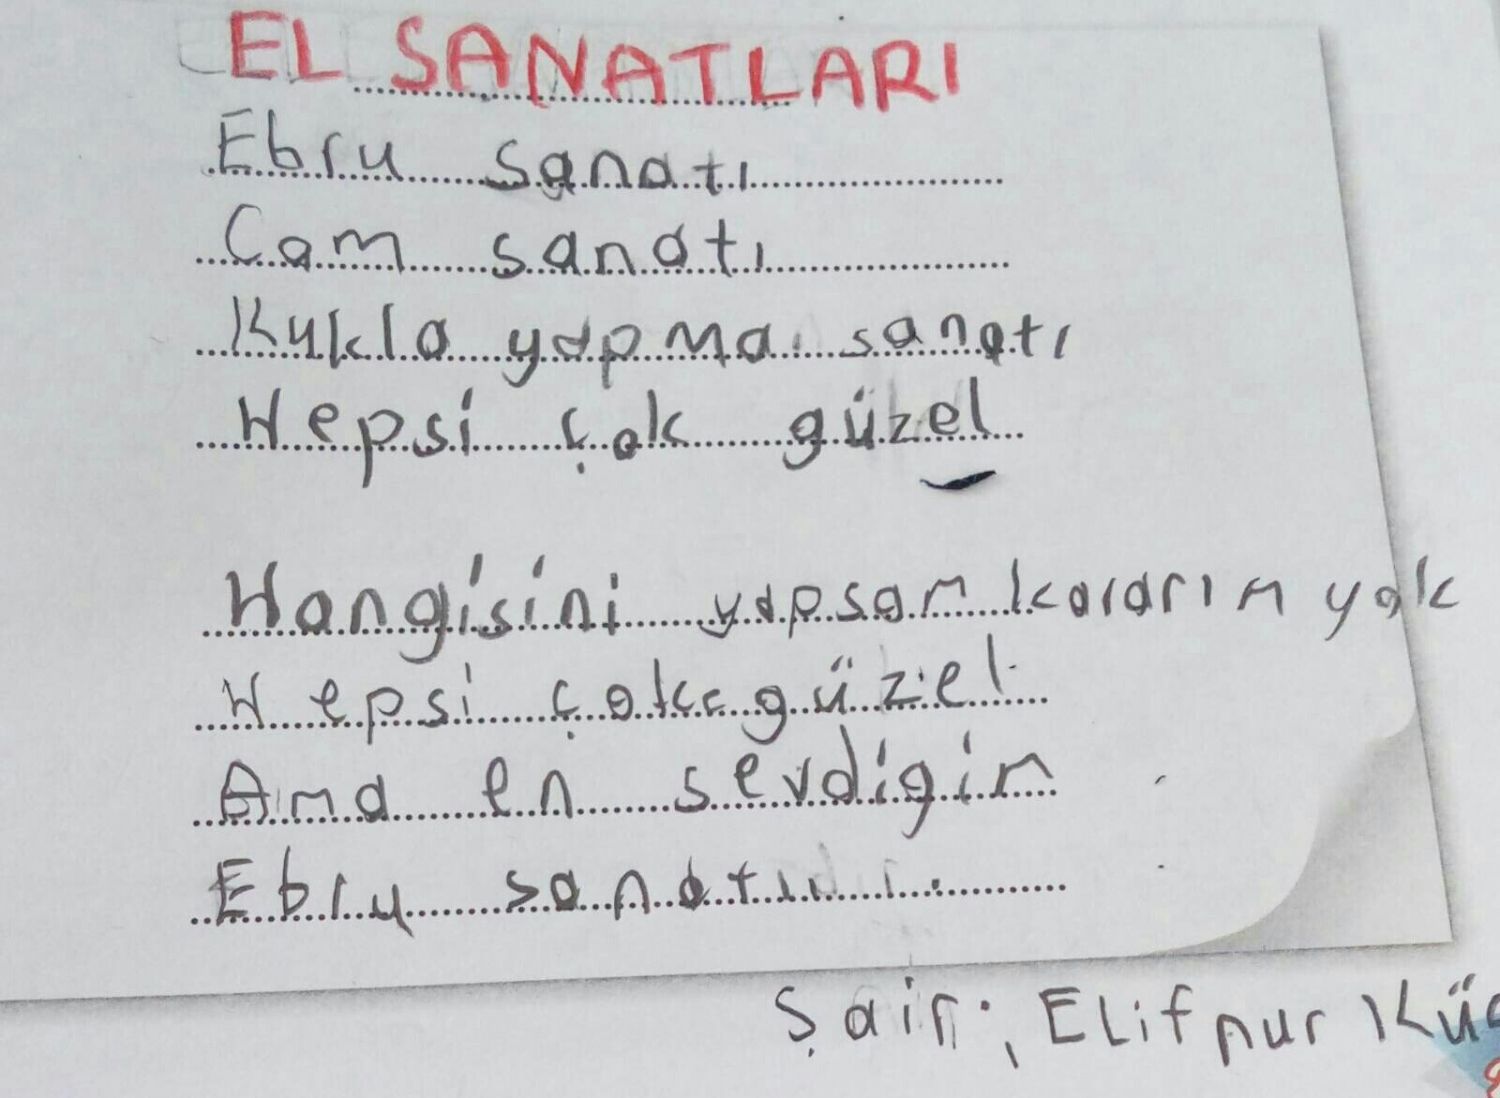 EL SANATLARI
Ebru sanatı
Cam sanatı
Kukla yapma sanatı
Hepsi çok güzel
Hangisini yapsam kararım yok
Hepsi çok güzel
Ama en sevdigim
Ebru sanatı
Şair: Elif nur